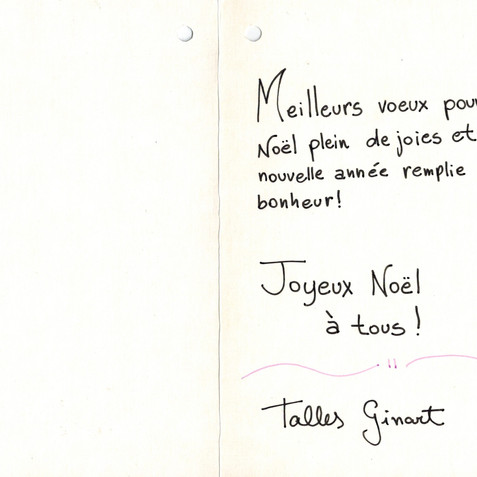 Meilleurs voeux pour
Noël plein de joies et
nouvelle année remplie
bonheur!
Joyeux Noël
à tous!
Talles Ginart